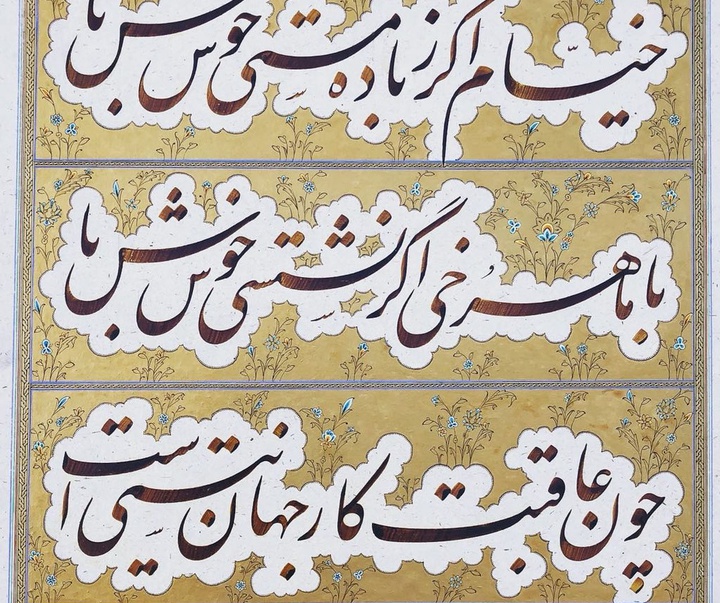 خیام اگر ز باده مستی خوش باش
با ماهرخی اگر نشستی خوش باش
چون عاقبت کار جهان نیستی است